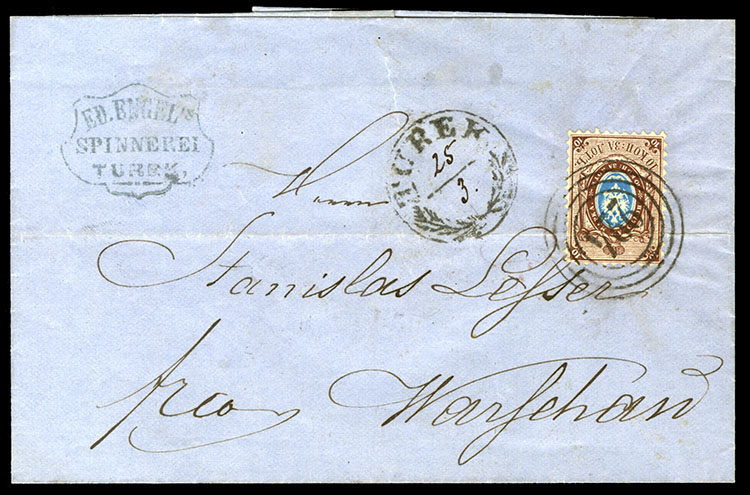 ED. ENGEL'S
SPINNEREI
TUREK,
TUREK
25
3.
10 КОП: ЗА ЛОТЪ.
Herrn
Stanislas Lesser
frco
Warschau